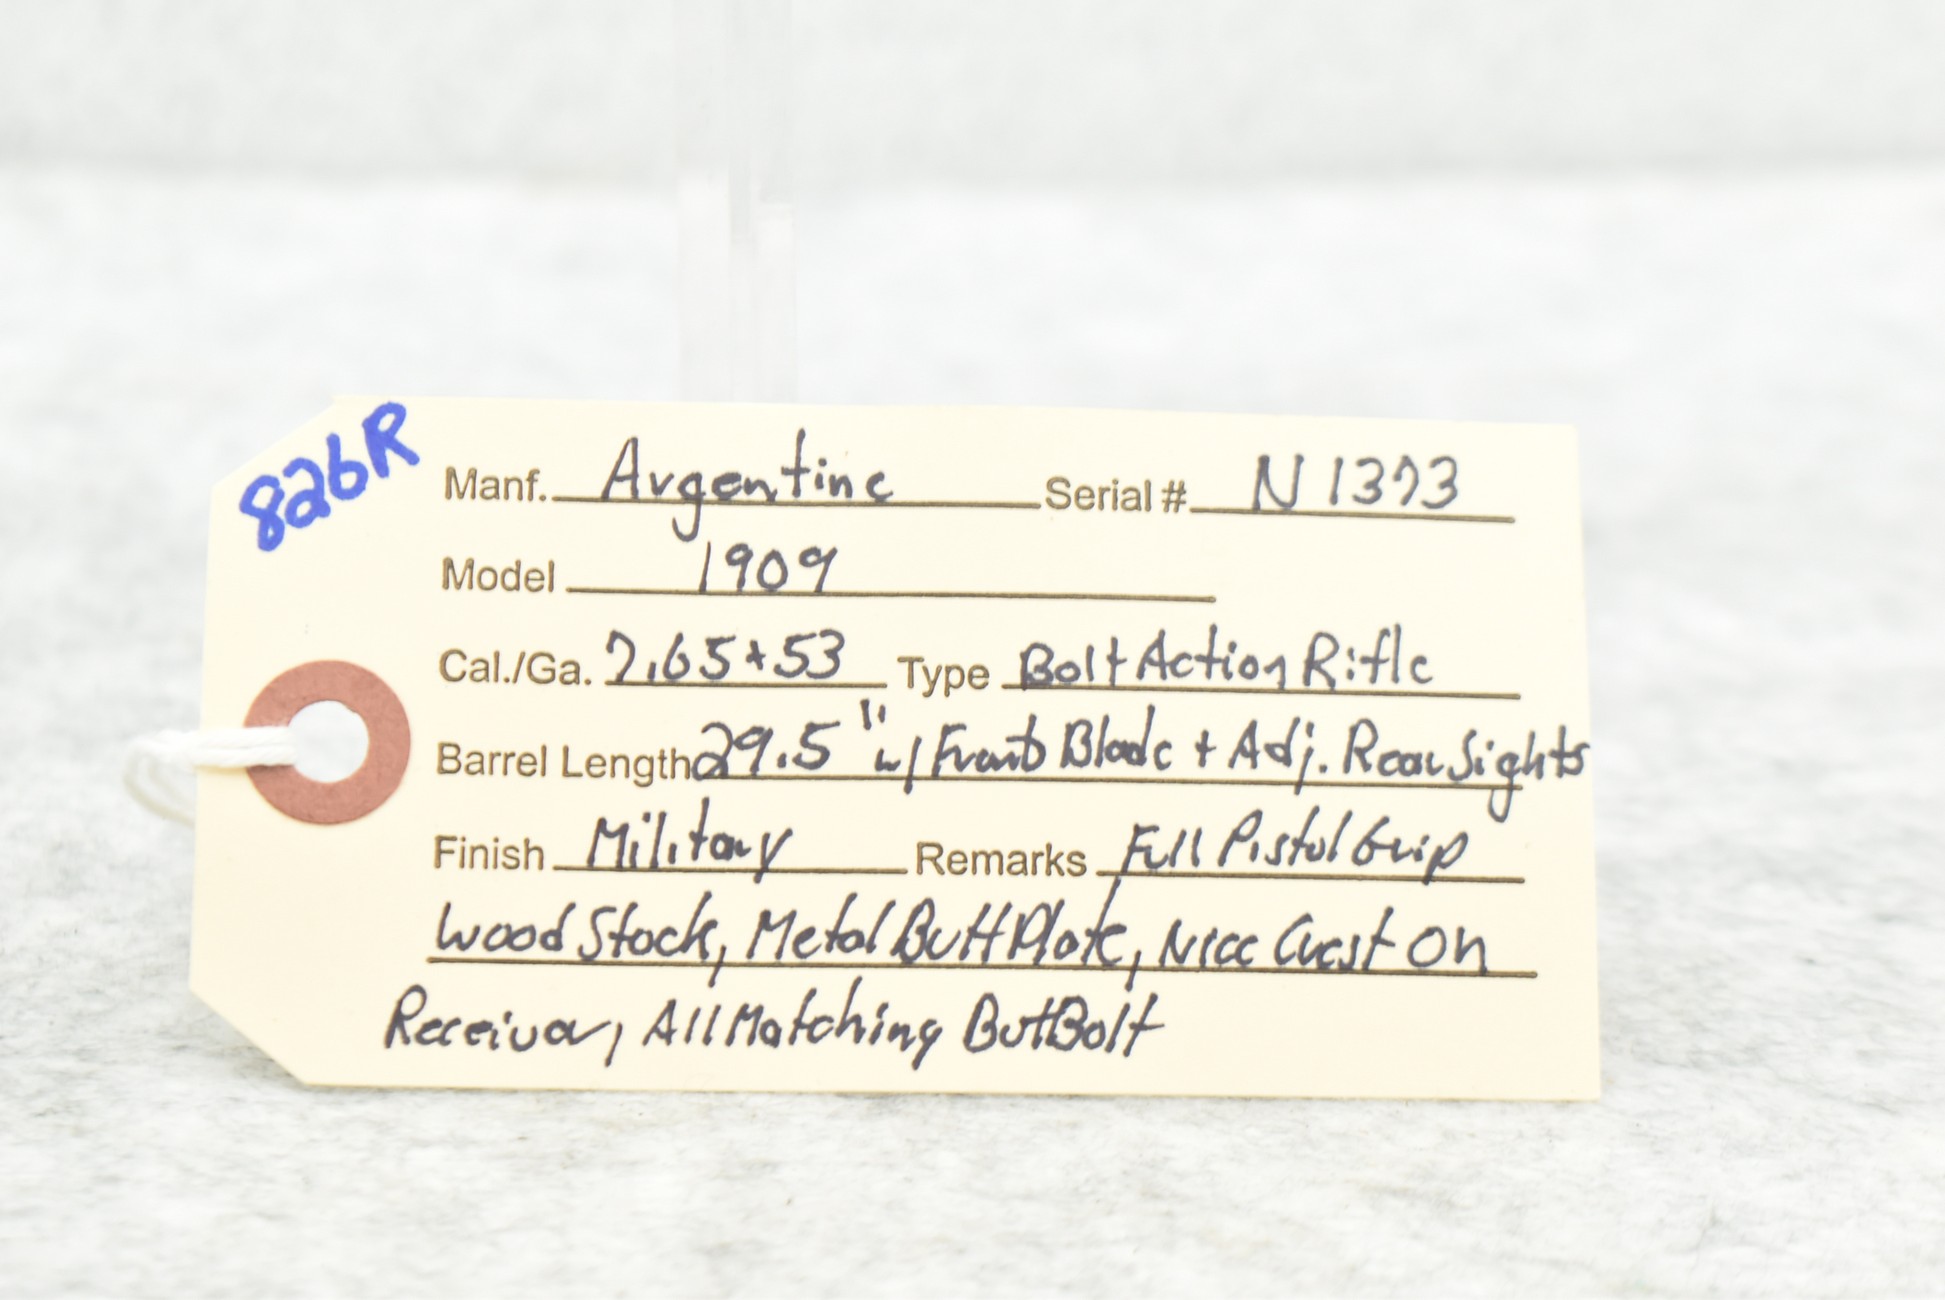 826R
Manf. Argentine Serial # N1373
Model 1909
Cal./Ga. 7.65x53 Type Bolt Action Rifle
Barrel Length 29.5" w/ Front Blade + Adj. Rear Sights
Finish Military Remarks Full Pistol Grip
Wood Stock, Metal Butt Plate, Nice Crest On
Receiver, All Matching But Bolt